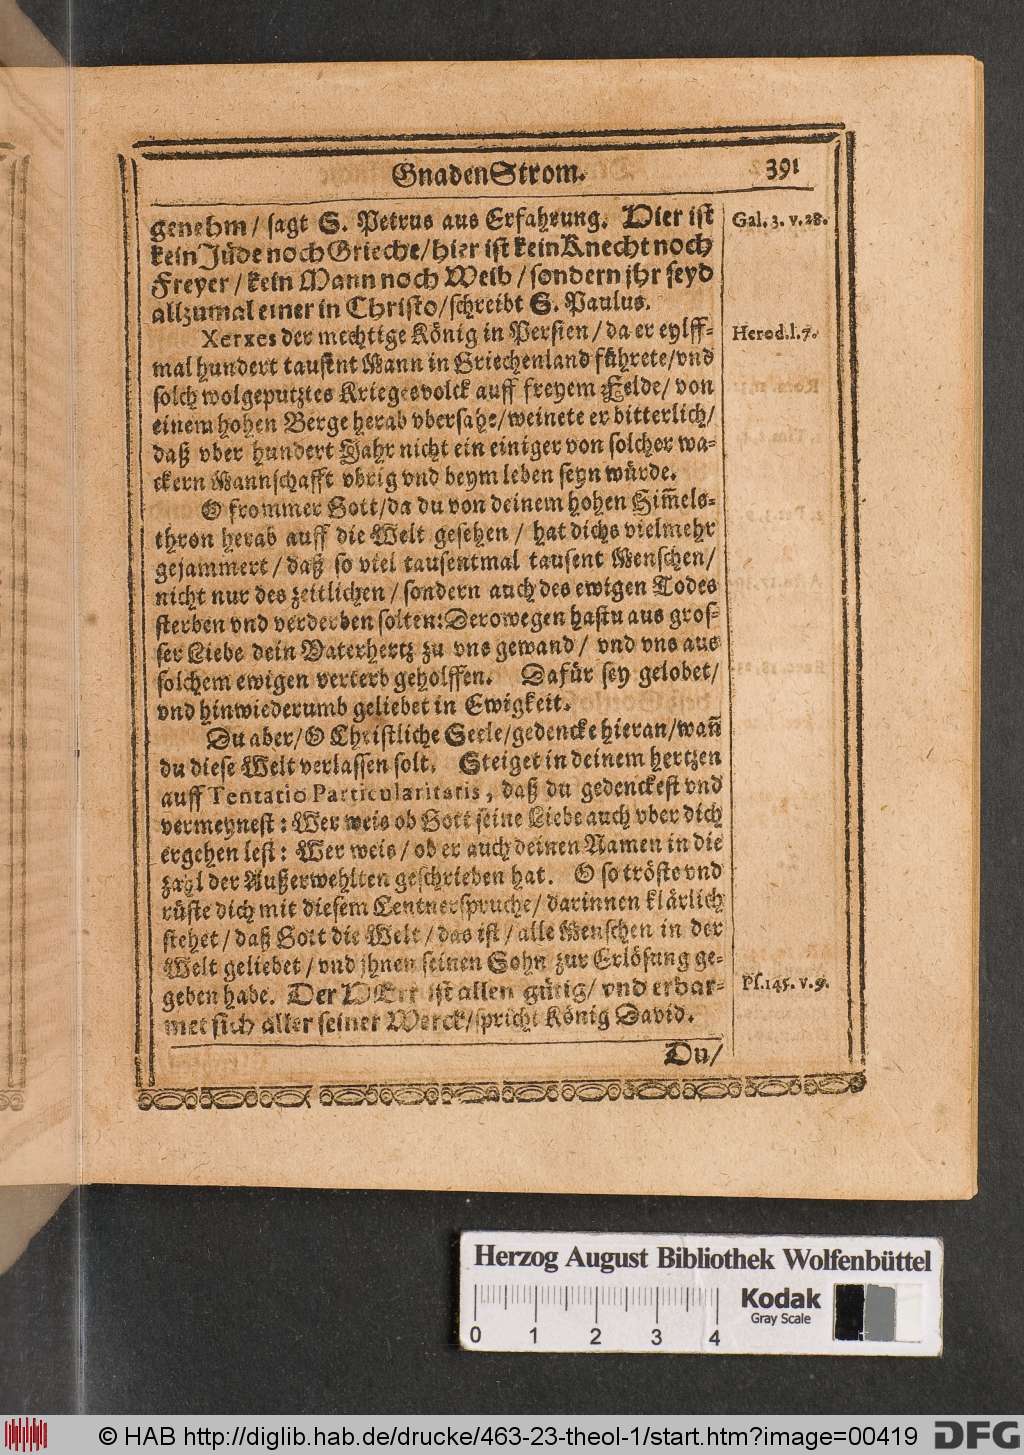 GnadenStrom. 391
genehm / sagt S. Petrus aus Erfahrung. Hier ist
kein Jüde noch Grieche / hier ist kein Knecht noch
Freyer / kein Mann noch Weib / sondern jhr seyd
allzumal einer in Christo / schreibt S. Paulus.
Gal. 3. v. 28.
Xerxes der mechtige König in Persien / da er eylff-
mal hundert tausent Mann in Griechenland führete / vnd
solch wolgeputztes Kriegesvolck auff freyem Felde / von
einem hohen Berge herab vbersahe / weinete er bitterlich /
daß vber hundert Jahr nicht ein einiger von solcher wa-
ckern Mannschafft vbrig vnd beym leben seyn würde.
Herod. l. 7.
O frommer Gott / da du von deinem hohen Him̃els-
thron herab auff die Welt gesehen / hat dichs vielmehr
gejammert / daß so viel tausentmal tausent Menschen /
nicht nur des zeitlichen / sondern auch des ewigen Todes
sterben vnd verderben solten: Derowegen hastu aus gros-
ser Liebe dein Vaterhertz zu vns gewand / vnd vns aus
solchem ewigen verterb geholffen. Dafür sey gelobet /
vnd hinwiederumb geliebet in Ewigkeit.
Du aber / O Christliche Seele / gedencke hieran / wañ
du diese Welt verlassen solt. Steiget in deinem hertzen
auff Tentatio Particularitatis, daß du gedenckest vnd
vermeynest: Wer weis ob Gott seine Liebe auch vber dich
ergehen lest: Wer weis / ob er auch deinen Namen in die
zahl der Außerwehlten geschrieben hat. O so tröste vnd
rüste dich mit diesem Centnerspruche / darinnen klärlich
stehet / daß Gott die Welt / das ist / alle Menschen in der
Welt geliebet / vnd jhnen seinen Sohn zur Erlösung ge-
geben habe. Der HErr ist allen gütig / vnd erbar-
met sich aller seiner Werck / spricht König David.
Ps. 145. v. 9.
Du /
Herzog August Bibliothek Wolfenbüttel
0 1 2 3 4
Kodak
Gray Scale
© HAB http://diglib.hab.de/drucke/463-23-theol-1/start.htm?image=00419
DFG